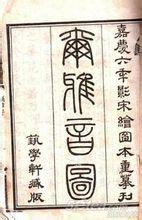 嘉慶六年影宋繪圖本重摹刊
爾雅音圖
藝學軒藏版